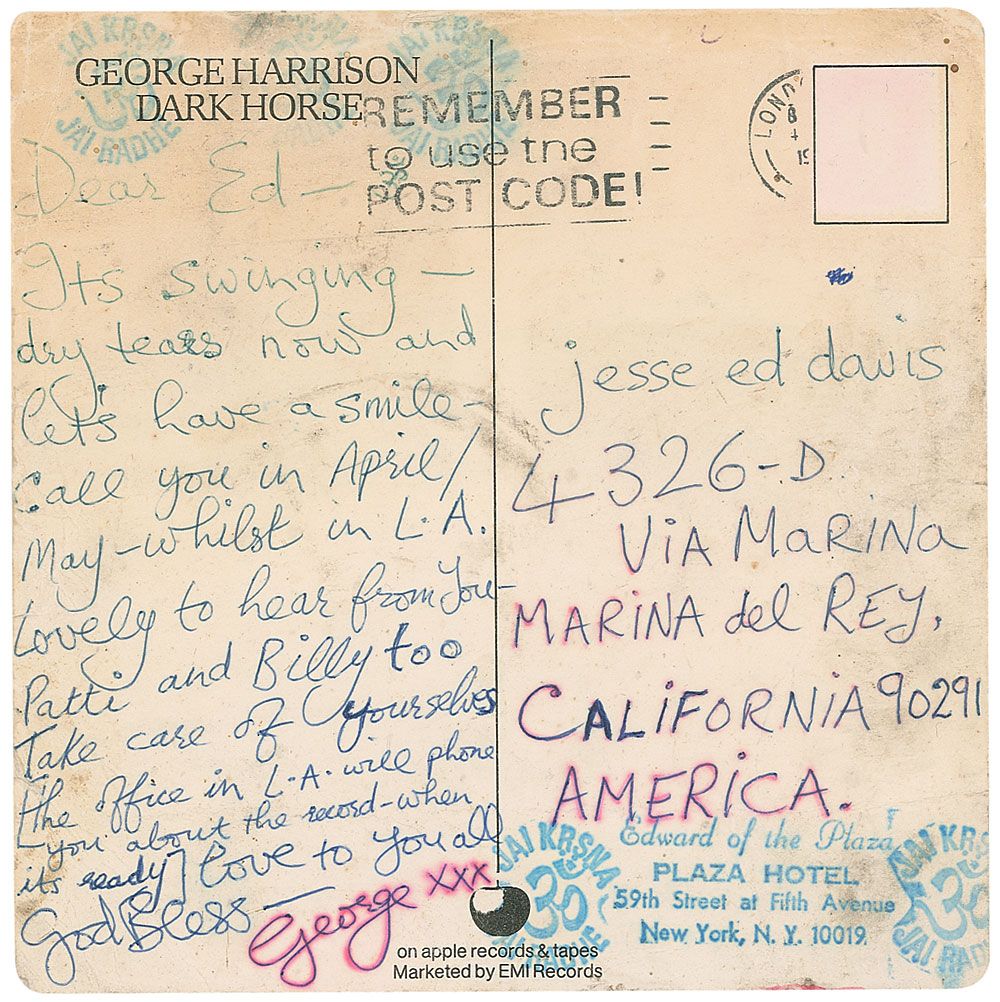 JAI KRSNA
JAI RADHE
JAI KRSNA
JAI RADHE
GEORGE HARRISON
DARK HORSE
REMEMBER
to use the
POST CODE!
Dear Ed —
Its swinging —
dry tears now and
let's have a smile -
Call you in April /
May - whilst in L.A.
Lovely to hear from You -
Patti and Billy too
Take care of yourselves
[the office in L.A. will phone
you about the record - when
its ready] love to you all
God Bless —
George xxx
jesse ed davis
4326-D
ViA MARiNa
MARiNA del REY,
CALiFORNiA 90291
AMERiCA.
JAI KRSNA
Edward of the Plaza
PLAZA HOTEL
59th Street at Fifth Avenue
New York, N. Y. 10019
JAI KRS
JAI RAD
on apple records & tapes
Marketed by EMI Records